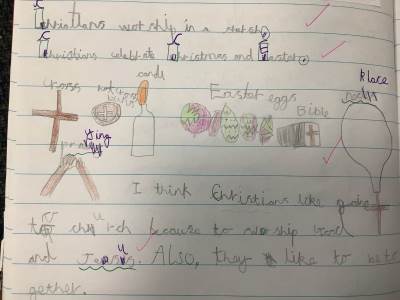 Christians worship in a
Christians celebrate Christmas and Easter.
candle
cross
hot cross
Easter eggs
Bible
Place
praying
I think Christians like going
to church because to worship God
and Jesus. Also, they like to be to
gether.